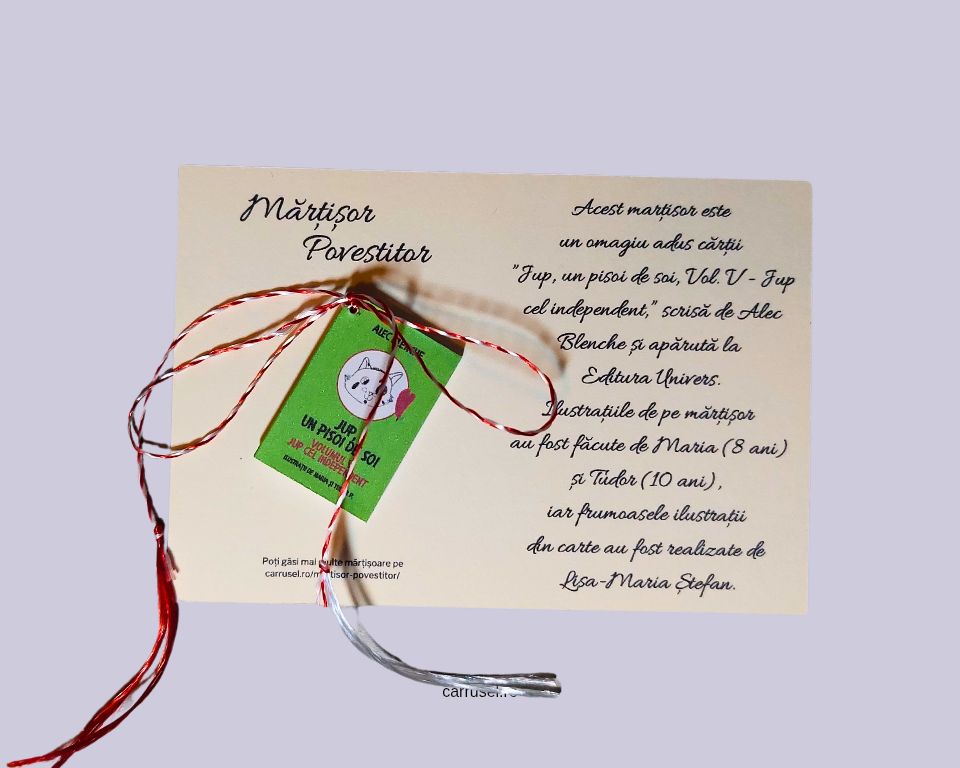 Mărțișor
Povestitor
ALEC BLENCHE
JUP
UN PISOI DE SOI
VOLUMUL
JUP CEL INDEPENDENT
ILUSTRAȚII DE MARIA ȘI
Poți găsi mai multe mărțișoare pe
carrusel.ro/martisor-povestitor/
Acest marțisor este
un omagiu adus cărții
"Jup, un pisoi de soi, Vol. V - Jup
cel independent," scrisă de Alec
Blenche și apărută la
Editura Univers.
Ilustrațiile de pe mărțișor
au fost făcute de Maria (8 ani)
și Tudor (10 ani),
iar frumoasele ilustrații
din carte au fost realizate de
Lisa-Maria Ștefan.
carrusel.ro